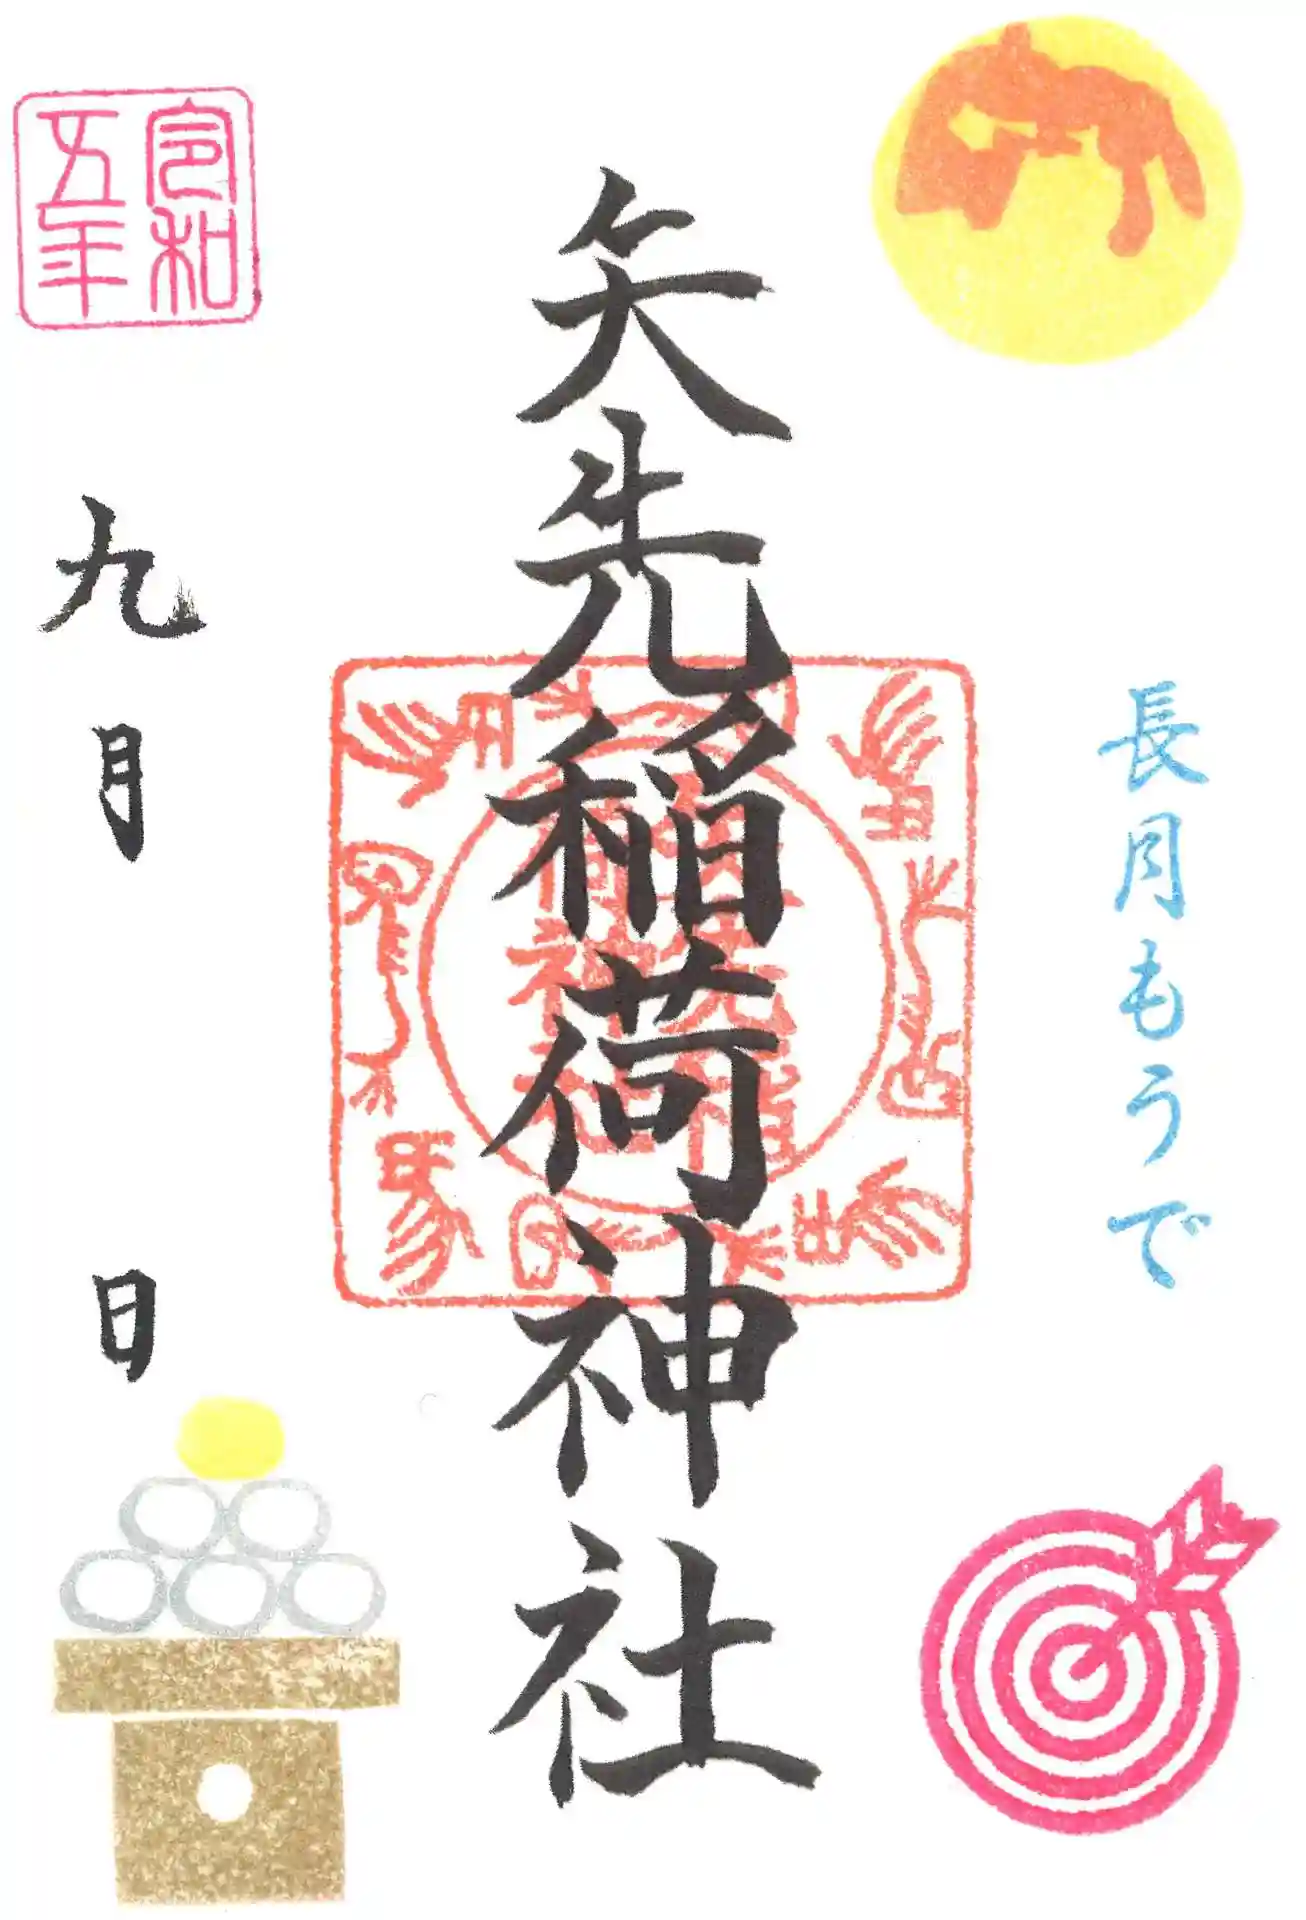 長月もうで
矢先稲荷神社
令和
五年
九月 日